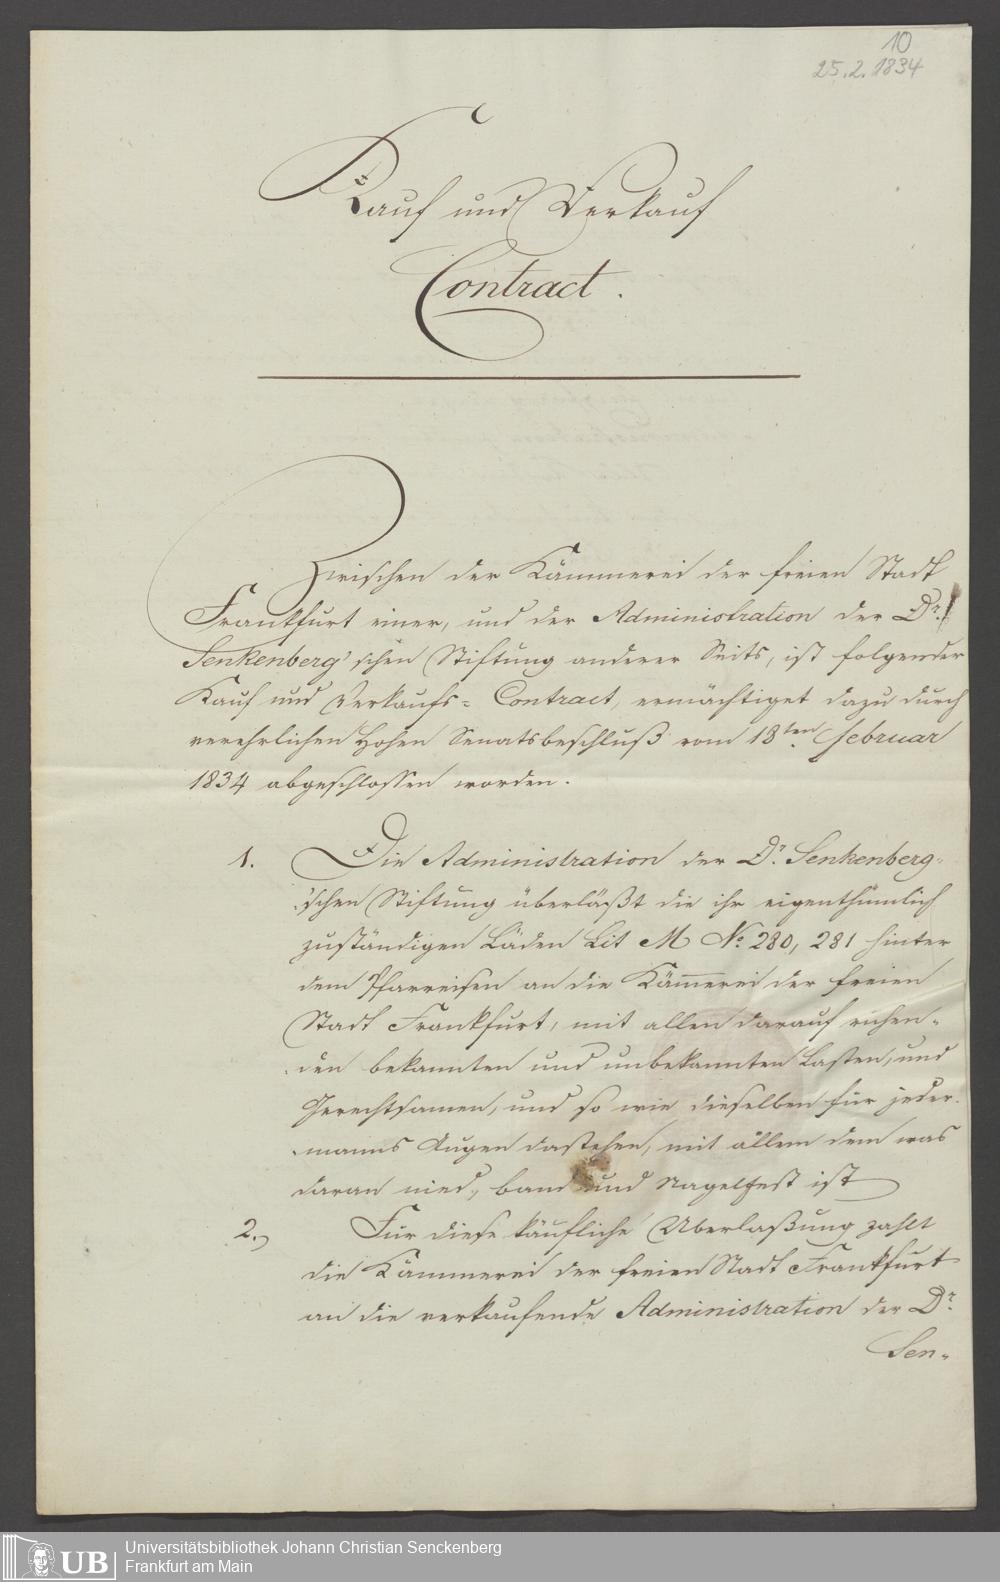 10
25.2.1834
Kauf und Verkauf
Contract.
Zwischen der Kämmerei der freien Stadt
Frankfurt einer, und der Administration der Dr.
Senkenberg'schen Stiftung anderer Seits, ist folgender
Kauf und Verkaufs- Contract, ermächtiget dazu durch
verehrlichen Hohen Senatsbeschluß vom 18ten Februar
1834 abgeschlossen worden.
1. Die Administration der Dr. Senkenberg-
'schen Stiftung überläßt die ihr eigenthümlich
zuständigen Läden Lit M No. 280, 281 hinter
dem Pfarreisen an die Kämerei der freien
Stadt Frankfurt, mit allen darauf ruhen-
den bekannten und unbekannten Lasten, und
Gerechtsamen, und so wie dieselben für jeder-
manns Augen dastehen, mit allem dem was
daran nied, band und Nagelfest ist
2. Für diese käufliche Uberlaßung zahlt
die Kämmerei der freien Stadt Frankfurt
an die verkaufende Administration der Dr.
Sen-
UB
Universitätsbibliothek Johann Christian Senckenberg
Frankfurt am Main